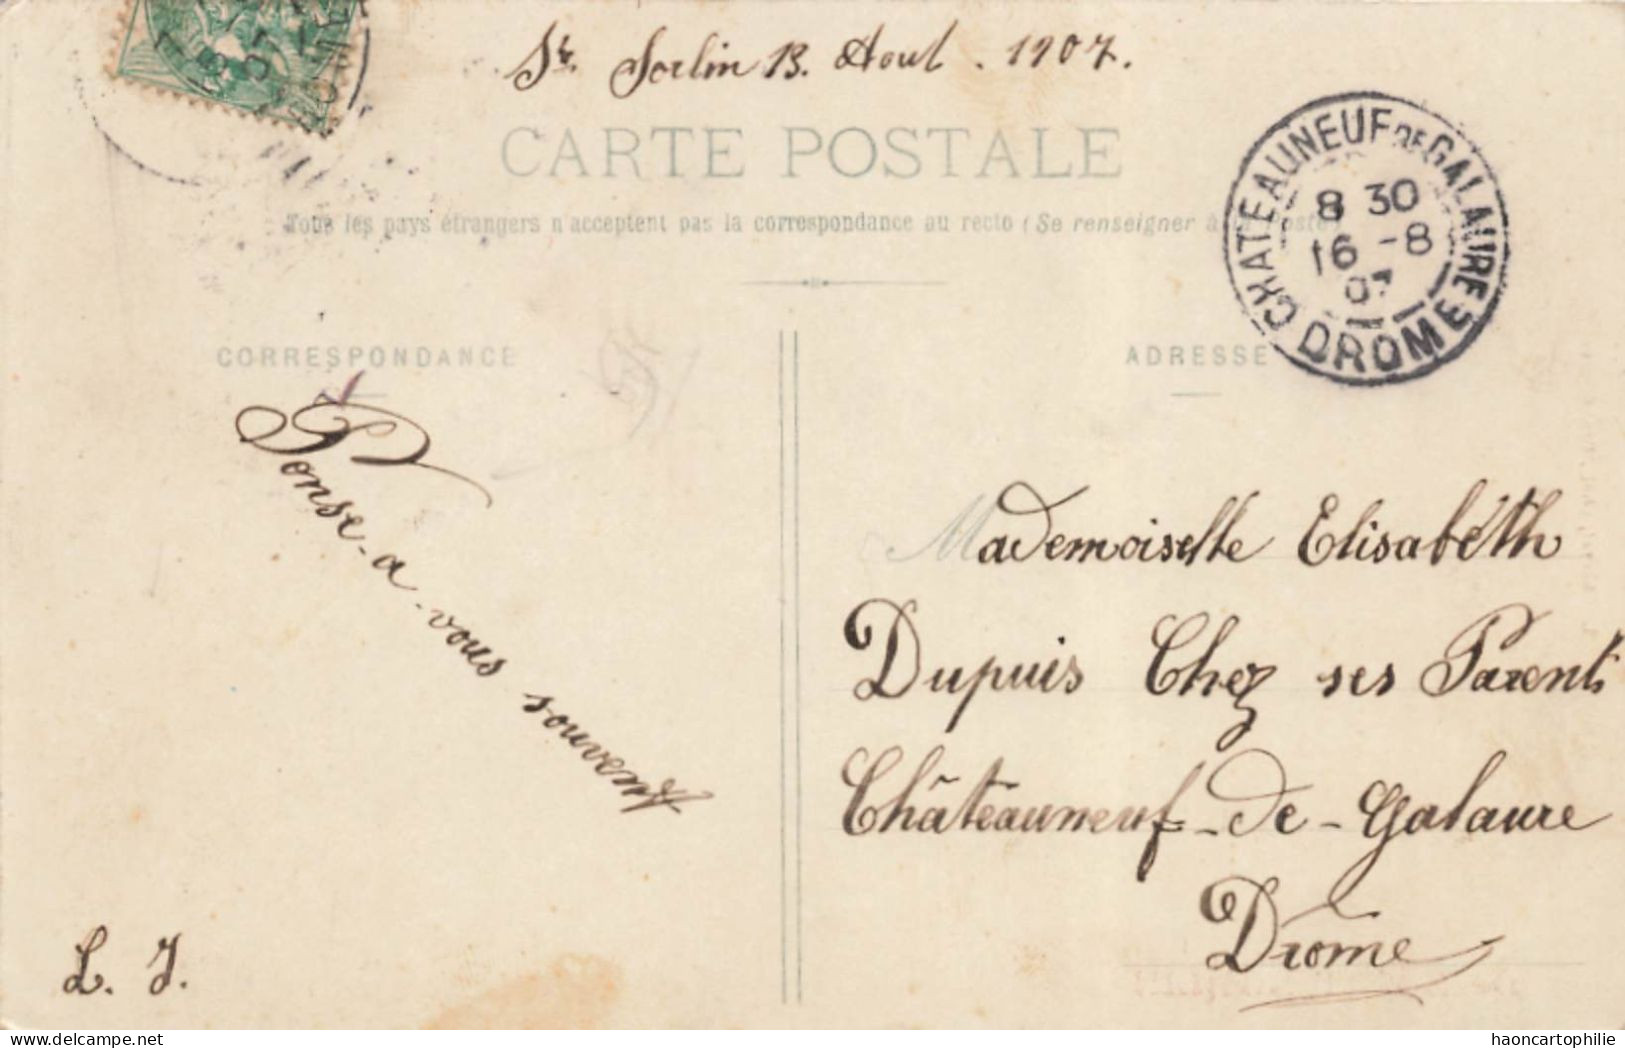 St. Sorlin 13. Aout. 1907.
CARTE POSTALE
Tous les pays étrangers n'acceptent pas la correspondance au recto (Se renseigner à la Poste)
CHATEAUNEUF DE GALAURE
8 30
16 -8
07
DROME
CORRESPONDANCE
ADRESSE
Ponse-a-vous souvent
L. J.
Mademoiselle Elisabéth
Dupuis Chez ses Parents
Châteauneuf-de-Galaure
Drome
delcampe.net
haoncartophilie